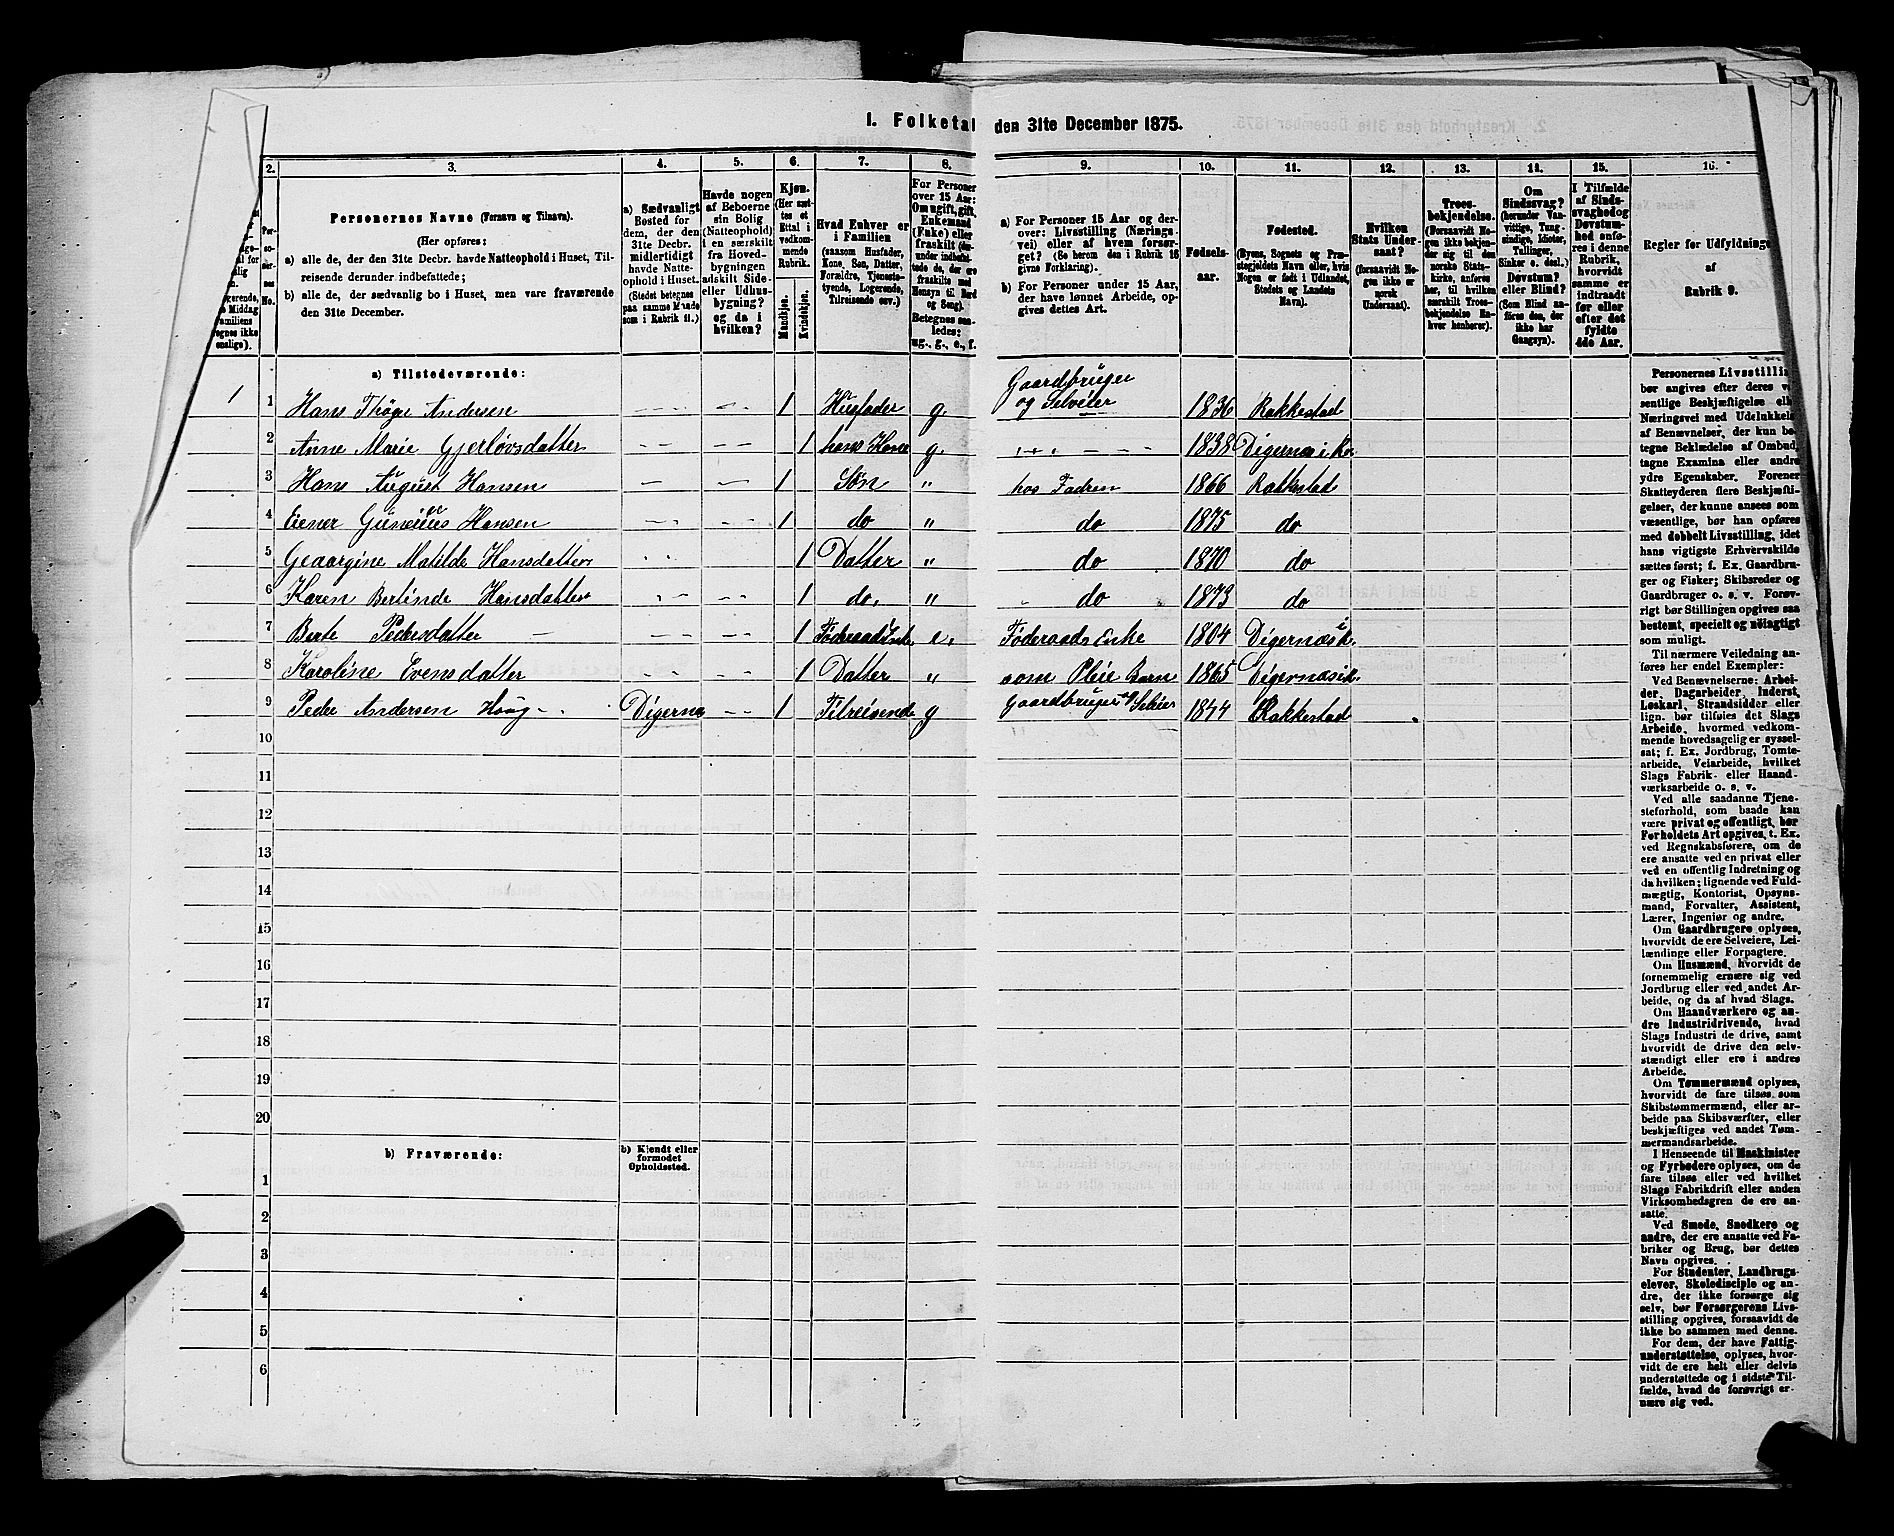 1. Folketal den 31te December 1875.
2. 3. 4. 5. 6. 7. 8. 9. 10. 11. 12. 13. 14. 15. 16.
Personernes Navne (Fornavn og Tilnavn).
(Her opføres:
a) alle de, der den 31te Decbr. havde Natteophold i Huset, Til-
reisende derunder indbefattede;
b) alle de, der sædvanlig bo i Huset, men vare fraværende
den 31te December.
a) Sædvanligt
Bosted for
dem, der den
31te Decbr.
midlertidigt
havde Natte-
ophold i Huset.
(Stedet betegnes
paa samme Maade
som i Rubrik 11.)
Havde nogen
af Beboerne
sin Bolig
(Natteophold)
i en særskilt
fra Hoved-
bygningen
adskilt Side-
eller Udhus-
bygning?
og da i
hvilken?
Kjøn.
(Her sæt-
tes et
Ettal i
vedkom-
mende
Rubrik.
Mandkjøn.
Kvindekjøn.
Hvad Enhver er
i Familien
(saasom Husfader,
Kone, Søn, Datter,
Forældre, Tjeneste-
tyende, Logerende,
Tilreisende osv.)
For Personer
over 15 Aar:
Om ugift, gift,
Enkemand
(Enke) eller
fraskilt
Betegnes saa-
ledes:
ug., g., e., f.
a) For Personer 15 Aar og der-
over: Livsstilling (Nærings-
vei) eller af hvem forsør-
get? (Se herom den i Rubrik 16
givne Forklaring).
b) For Personer under 15 Aar,
der have lønnet Arbeide, op-
gives dettes Art.
Fødsels-
aar.
Fødested.
(Byens, Sognets og Præ-
stegjeldets Navn eller, hvis
Nogen er født i Udlandet,
Stedets og Landets
Navn).
Hvilken
Stats Under-
saat?
(forsaavidt No-
gen ikke er
norsk
Undersaat).
Troes-
bekjendelse.
(Forsaavidt No-
gen ikke bekjen-
der sig til den
norske Stats-
kirke, anføres
her, til hvilken
særskilt Troes-
bekjendelse En-
hver henhører).
Om
Sindssvag?
(herunder Van-
vittige, Tung-
sindige, Idioter,
Tullinger,
Sinker o. desl.)
Døvstum?
eller Blind?
(Som Blind an-
føres den, der
ikke har
Gangsyn).
I Tilfælde
af Sinds-
svaghed og
Døvstum-
hed anfø-
res i denne
Rubrik,
hvorvidt
samme er
indtraadt
før eller
efter det
fyldte
4de Aar.
Regler for Udfyldning
af
Rubrik 9.
a) Tilstedeværende:
1 1 Hans Thøge Andersen 1 Husfader g. Gaardbruger og Selveier 1836 Rakkestad
2 Anne Marie Gjerløvsdatter 1 hans Kone g. 1838 Digernæs i R.
3 Hans August Hansen 1 Søn " hos Fadren 1866 Rakkestad
4 Eiener Hansen 1 do " do 1875 do
5 Geaargine Matilde Hansdatter 1 Datter " do 1870 do
6 Karen Berlinde Hansdatter 1 do. " do 1873 do
7 Berte Pedersdatter 1 Føderaads Enke e. Føderaads Enke 1804 Digernæs i R.
8 Karoline Evensdatter 1 Datter " som Pleie Barn 1865 Digernæs i R.
9 Peder Andersen Haug Digernæs 1 Tilreisende g Gaardbruger og Selveier 1844 Rakkestad
10
11
12
13
14
15
16
17
18
19
20
b) Fraværende:
b) Kjendt eller
formodet
Opholdssted.
1
2
3
4
5
6
Personernes Livsstilling
bør angives efter deres væ-
sentlige Beskjæftigelse eller
Næringsvei med Udelukkelse
af Benævnelser, der kun be-
tegne Beklædelse af Ombud,
tagne Examina eller andre
ydre Egenskaber. Forener
Skatteyderen flere Beskjæfti-
gelser, der kunne ansees som
væsentlige, bør han opføres
med dobbelt Livsstilling, idet
hans vigtigste Erhvervskilde
sættes først; f. Ex. Gaardbru-
ger og Fisker; Skibsreder og
Gaardbruger o. s. v. Forøv-
rigt bør Stillingen opgives saa
bestemt, specielt og nøiagtigt
som muligt.
Til nærmere Veiledning an-
føres her endel Exempler:
Ved Benævnelserne: Arbei-
der, Dagarbeider, Inderst,
Løskarl, Strandsidder eller
lign. bør tilføies det Slags
Arbeide, hvormed vedkom-
mende hovedsagelig er syssel-
sat; f. Ex. Jordbrug, Tomte-
arbeide, Veiarbeide, hvilket
Slags Fabrik- eller Haand-
værksarbeide o. s. v.
Ved alle saadanne Tjene-
steforhold, som baade kan
være privat og offentligt, bør
Forholdets Art opgives, t. Ex.
ved Regnskabsførere, om de
ere ansatte ved en privat eller
ved en offentlig Indretning og
da hvilken; lignende ved Fuld-
mægtig, Kontorist, Opsyns-
mand, Forvalter, Assistent,
Lærer, Ingeniør og andre.
Om Gaardbrugere oplyses,
hvorvidt de ere Selveiere, Lei-
lændinge eller Forpagtere.
Om Husmænd, hvorvidt de
fornemmelig ernære sig ved
Jordbrug eller ved andet Ar-
beide, og da af hvad Slags.
Om Haandværkere og an-
dre Industridrivende, hvad
Slags Industri de drive, samt
hvorvidt de drive den selv-
stændigt eller ere i andres
Arbeide.
Om Tømmermænd oplyses,
hvorvidt de fare tilsøs som
Skibstømmermænd, eller ar-
beide paa Skibsværfter, eller
beskjæftiges ved andet Tøm-
mermandsarbeide.
I Henseende til Maskinister
og Fyrbødere oplyses, om de
fare tilsøs eller ved hvilket
Slags Fabrikdrift eller anden
Virksomhedsgren de ere an-
satte.
Ved Smede, Snedkere og
andre, der ere ansatte ved Fa-
briker og Brug, bør dettes
Navn opgives.
For Studenter, Landbrugs-
elever, Skoledisciple og an-
dre, der ikke forsørge sig
selv, bør Forsørgerens Livs-
stilling opgives, forsaavidt de
ikke bo sammen med denne.
For dem, der have Fattig-
understøttelse, oplyses, hvor-
vidt de ere helt eller delvis
understøttede og i sidste Til-
fælde, hvad de forøvrigt er-
nære sig ved.